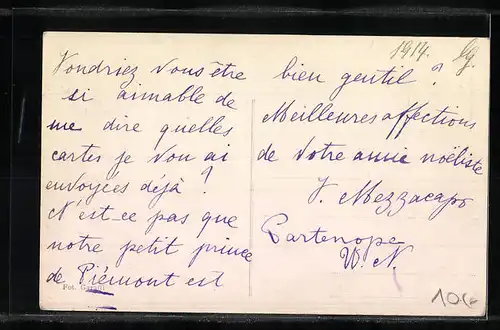 Voudriez vous être
si aimable de
me dire quelles
cartes je vou ai
envoyées déjà?
N'est-ce pas que
notre petit prince
de Piémont est
Fot.
1914.
bien gentil?
Meilleures affections
de votre amie noëliste
V. Mezzacapo
Partenope
W. N.
10€